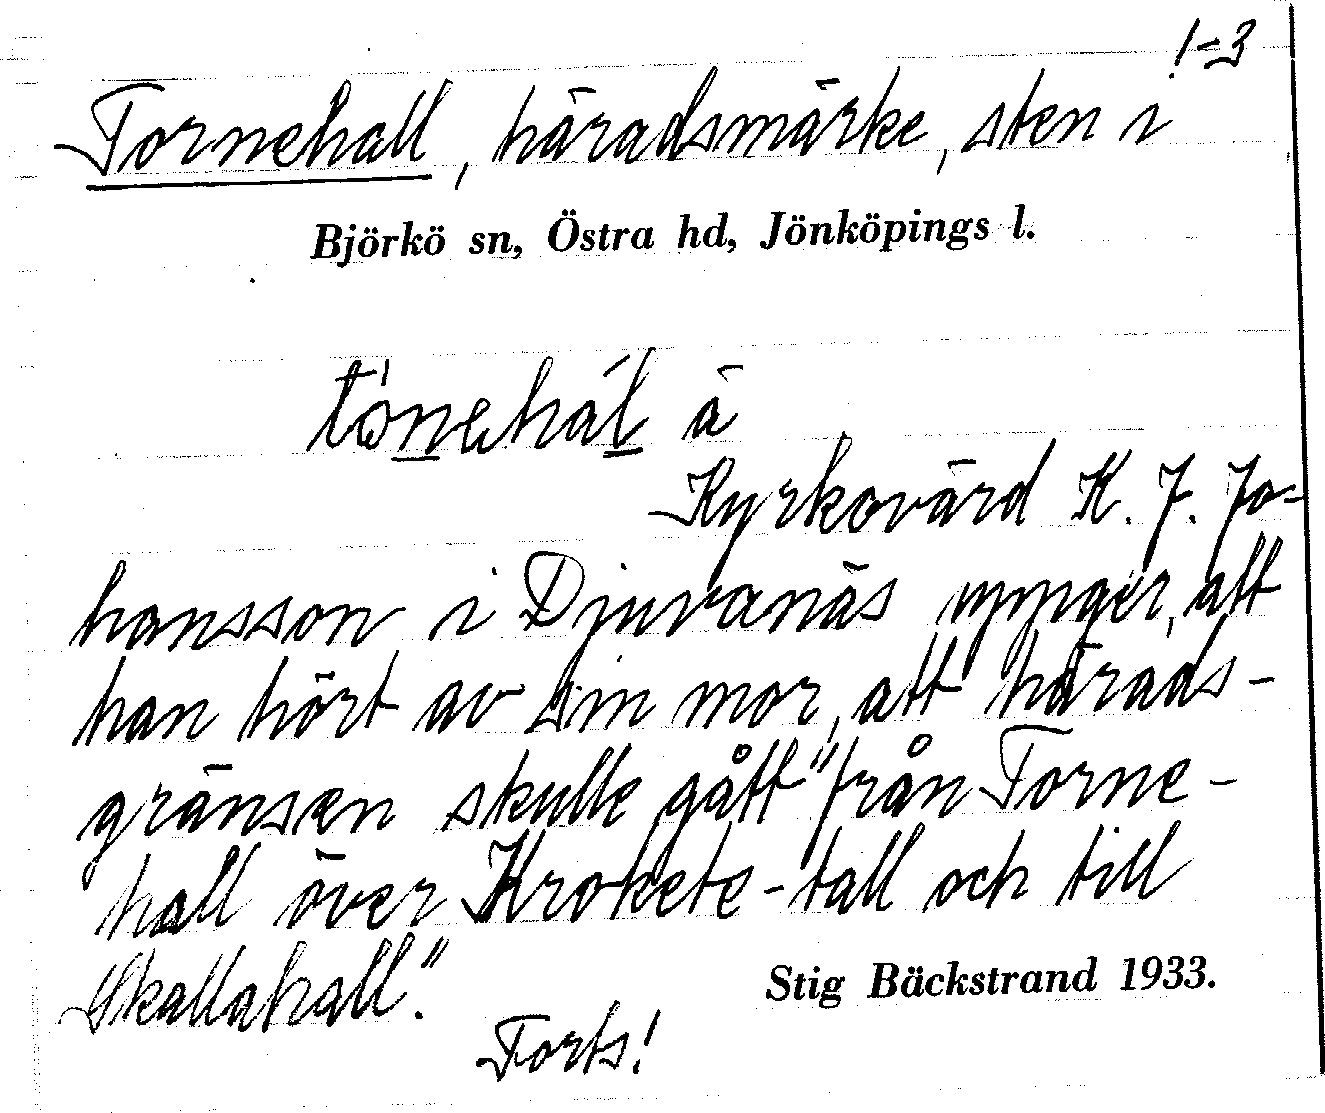 1-3
Tornehall, häradsmärke, sten i
Björkö sn, Östra hd, Jönköpings l.
tònehál ä
Kyrkovärd K. J. Jo-
hansson i Djuvanäs uppger, att
han hört av sin mor, att härads-
gränsen skulle gått "från Torne-
hall över Krokete-tall och till
Skallahall."
Stig Bäckstrand 1933.
Forts!